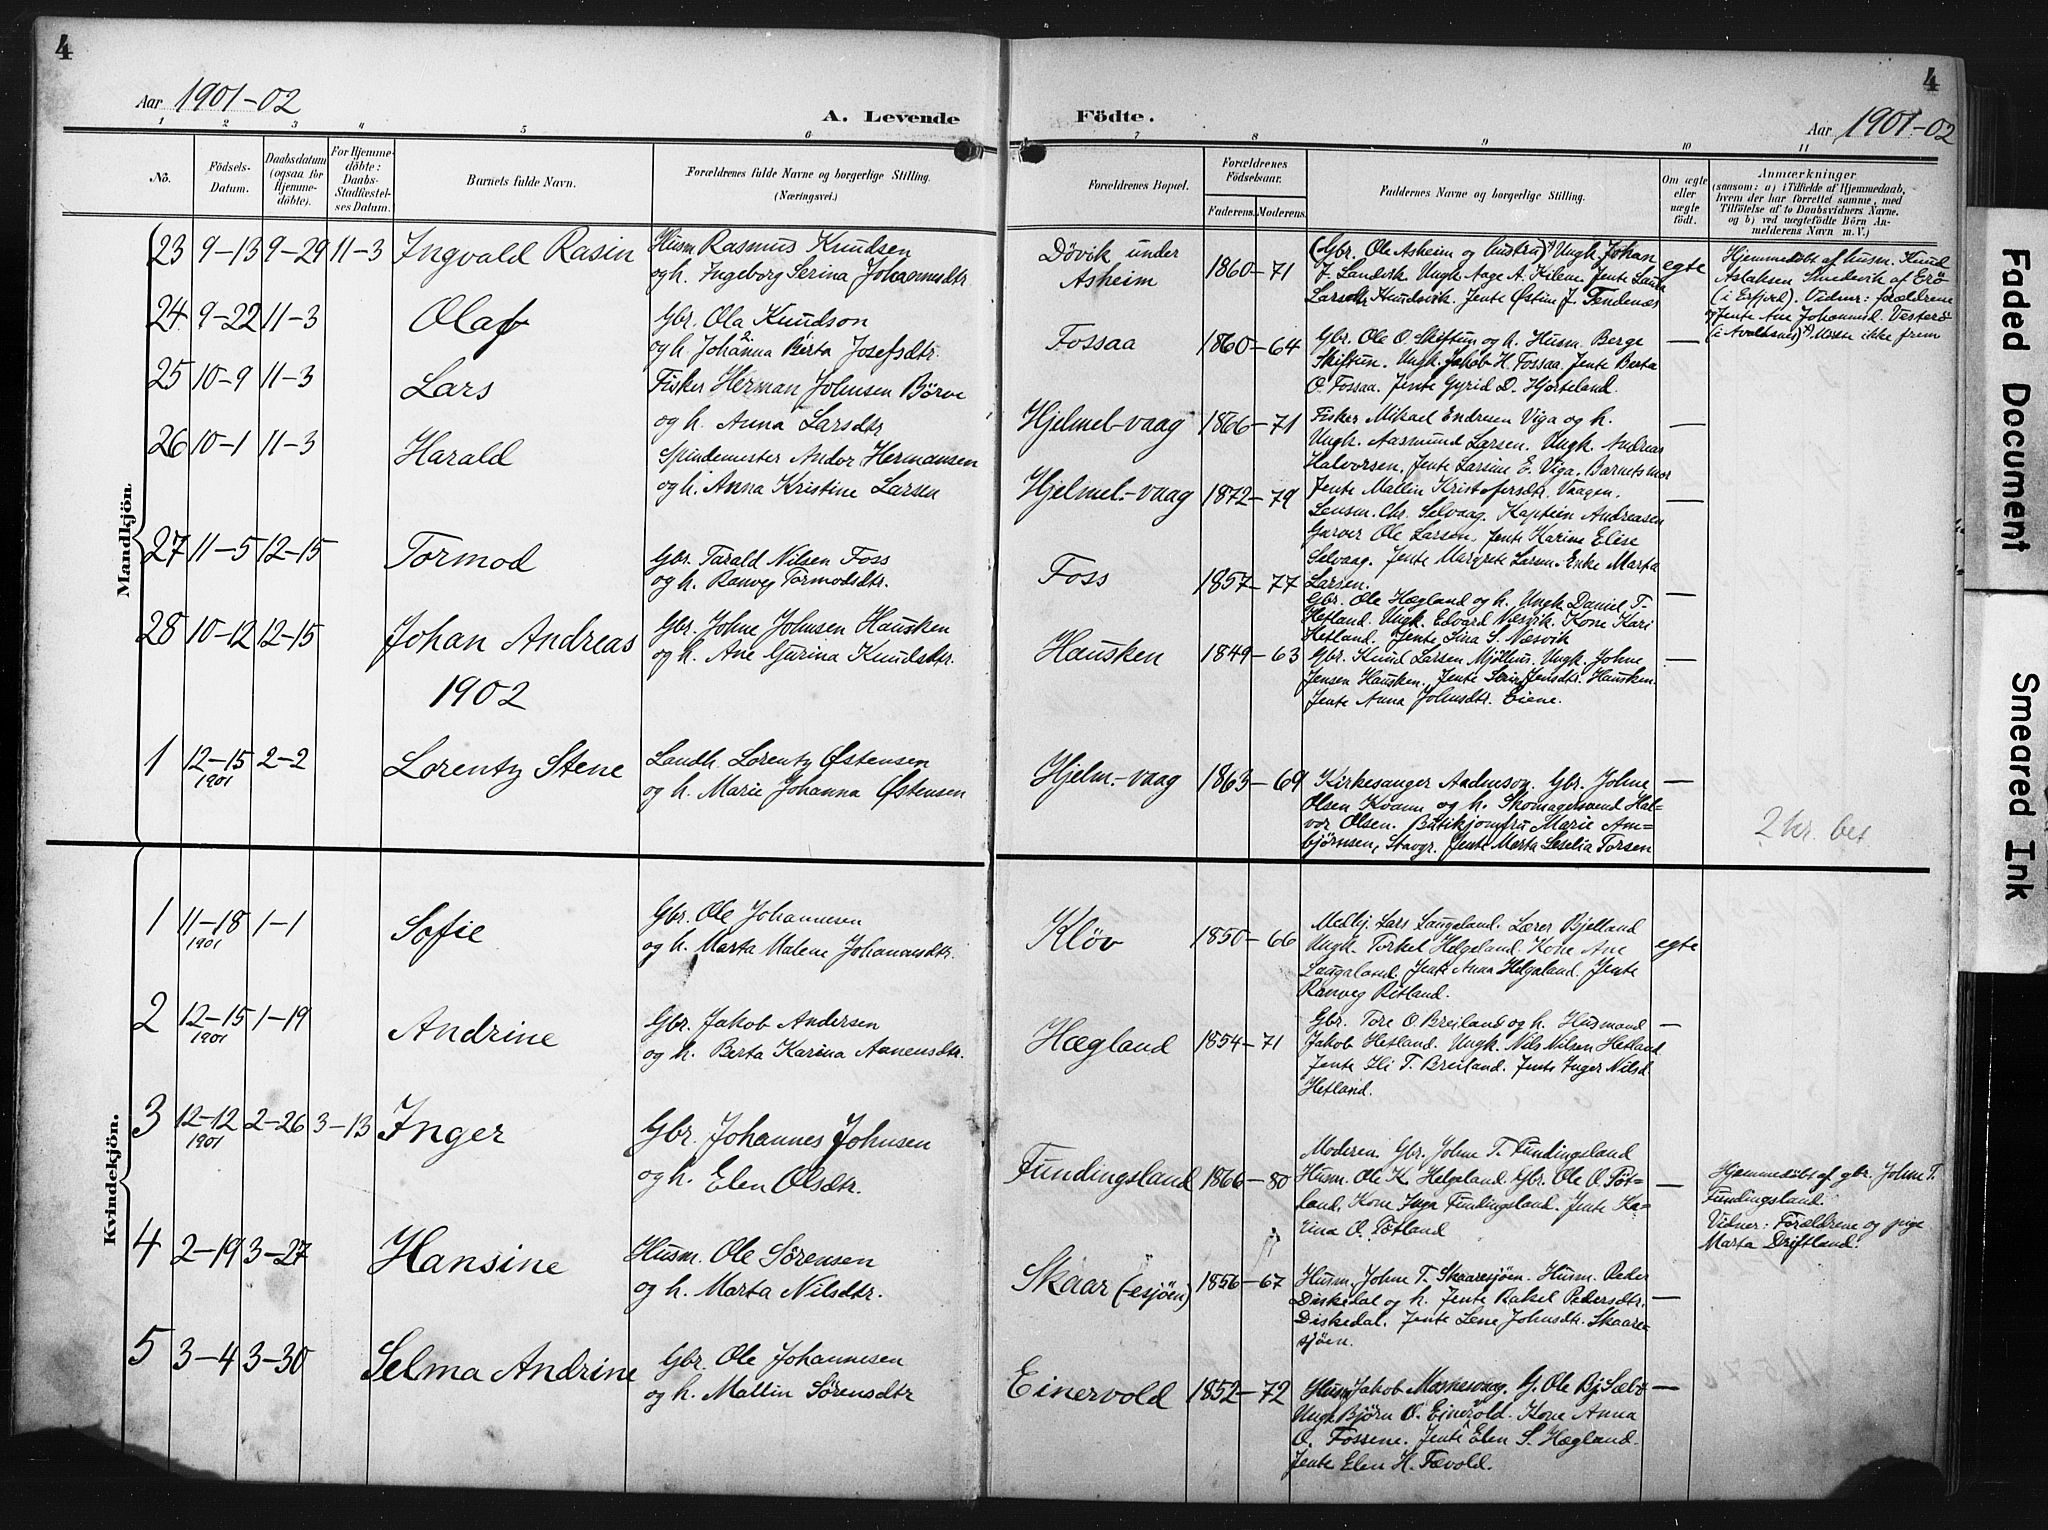 4
Aar 1901-02
A. Levende
1 2 3 4 5 6
Nō.
Födsels-Datum.
Daabsdatum (ogsaa for Hjemme-döbte).
For Hjemme-döbte: Daabs-Stadfestel-ses Datum.
Barnets fulde Navn.
Forældrenes fulde Navne og borgerlige Stilling.
(Næringsvei.)
Mandkjön
23 9-13 9-29 11-3 Ingvald Rasin Husm Rasmus Knudsen
og h. Ingeborg Serina Johannesdtr
24 9-22 11-3 Olaf Gbr. Ola Knudson
og h. Johanna Berta Josefsdtr.
25 10-9 11-3 Lars Fisker Herman Johnsen Börve
og h. Anna Larsdtr
26 10-1 11-3 Harald Spindemester Andor Hermansen
og h. Anna Kristine Larsen
27 11-5 12-15 Tormod Gbr. Tarald Nilsen Foss
og h. Ranveg Tormodsdtr.
28 10-12 12-15 Johan Andreas Gbr. Johne Johnsen Hausken
og h. Ane Gurina Knudsdtr.
1902
1 12-15 2-2 Lorentz Stene Landh. Lorentz Østensen
1901 og h. Marie Johanna Østensen
Kvindekjön.
1 11-18 1-1 Sofie Gbr. Ole Johannesen
1901 og h. Marta Malene Johannesdtr.
2 12-15 1-19 Andrine Gbr. Jakob Andersen
1901 og h. Berta Karina Aanensdtr.
3 12-12 2-26 3-13 Inger Gbr. Johannes Johnsen
1901 og h. Elen Olsdtr.
4 2-19 3-27 Hansine Husm. Ole Sörensen
og h. Marta Nilsdtr.
5 3-4 3-30 Selma Andrine Gbr. Ole Johannesen
og h. Mallin Sörensdtr
4
Födte.
Aar 1901-02
7 8 9 10 11
Forældrenes Bopæl.
Forældrenes Födselsaar.
Faderens. Moderens.
Faddernes Navne og borgerlige Stilling.
Om ægte eller uægte födt.
Anmærkninger
(saasom: a) i Tilfælde af Hjemmedaab,
hvem der har forrettet samme, med
Tilföielse af to Daabsvidners Navne.
og b) ved uægtefödte Börn An-
melderens Navn m. V.)
Dövik under Asheim 1860-71 (Gbr. Ole Asheim og hustru) Ungk. Johan
J. Landvik. Ungk. Aage A. Kilene Jente Laura
Larsdtr Knudsvik. Jente Østine J. Tendenæs
egte
Hjemmedöbt af husm. Knud
Aslaksen Smedvik af Erö
(i Erfjord). Vidner: forældrene
og jente Ane Johannesd. Vesterö
(i Avaldsnes) Mödte ikke frem
Fossaa 1860-64 Gbr. Ole O Skiftun og h. Husm. Berge —
Skiftun. Ungk. Jakob H. Fossaa. Jente Berta
O. Fossaa. Jente Gyrid D. Hjorteland.
Hjelmel-vaag 1866-71 Fisker Mikael Endresen Viga og h. —
Ungk. Aasmund Larsen. Ungk. Andreas
Halvorsen. Jente Larsine E. Viga. Barnets mor
Hjelmel.-vaag 1872-79 Jente Mallin Kristofersdtr. Vaagen. —
Lensm. Chr. Selvaag. Kaptein Andreasen
Garver Ole Larsen. Jente Karine Elise
Selvaag. Jente Margrete Larsen. Enke Marta
Larsen.
Foss 1857-77 —
Gbr. Ole Hægland og h. Ungk. Daniel T.
Hetland. Ungk. Edvard Næsvik. Kone Kari
Hetland. Jente Lina S. Næsvik
Hausken 1849-63 Gbr. Knud Larsen Mjölhus. Ungk. Johne —
Jensen Hausken. Jente Serine Jensdtr. Hausken.
Jente Anna Johnsdtr. Eiene.
Hjelm.-vaag 1863-69 Kirkesanger Anderson. Gbr. Johne —
Olsen Kvame og h. Skomagersvend Hal-
vor Olsen. Butikjomfru Marie Am-
björnsen, Stavgr. Jente Marta Seselia Torsen
2 kr. bet
Klöv 1850-66 Medhj. Lars Laugeland. Lærer Bjelland
Ungk. Torkel Helgeland. Kone Ane egte
Laugaland. Jente Anna Helgaland. Jente
Ranveg Ritland.
Hægland 1854-71 Gbr. Tore O. Breiland og h. Husmand —
Jakob Hetland. Ungk. Nils Nilsen Hetland
Jente Eli T. Breiland. Jente Inger Nilsd.
Hetland.
Fundingsland 1866-80 Moderen. Gbr. Johne T. Fundingsland
Husm. Ole K. Helgeland. Gbr. Ole O. Töt- —
land. Kone Inga Fundingsland. Jente Ka-
rina O. Tötland
Hjemmedöbt af gbr. Johne T.
Fundingsland.
Vidner: Forældrene og pige
Marta Driftland.
Skaar (-esjöen) 1856-67 Husm. Johne T. Skaaresjöen. Husm. Peder
Diskedal og h. Jente Rakel Pedersdtr. —
Diskedal. Jente Lene Johnsdtr. Skaare-
sjöen.
Einervold 1852-72 Husm Jakob Moskesvaag. G. Ole Bj. Sæbö —
Ungk Björn O. Einervold. Kone Anna
O. Fossene. Jente Elen S. Hægland.
Jente Elen H. Tævold.
Faded Document
Smeared Ink